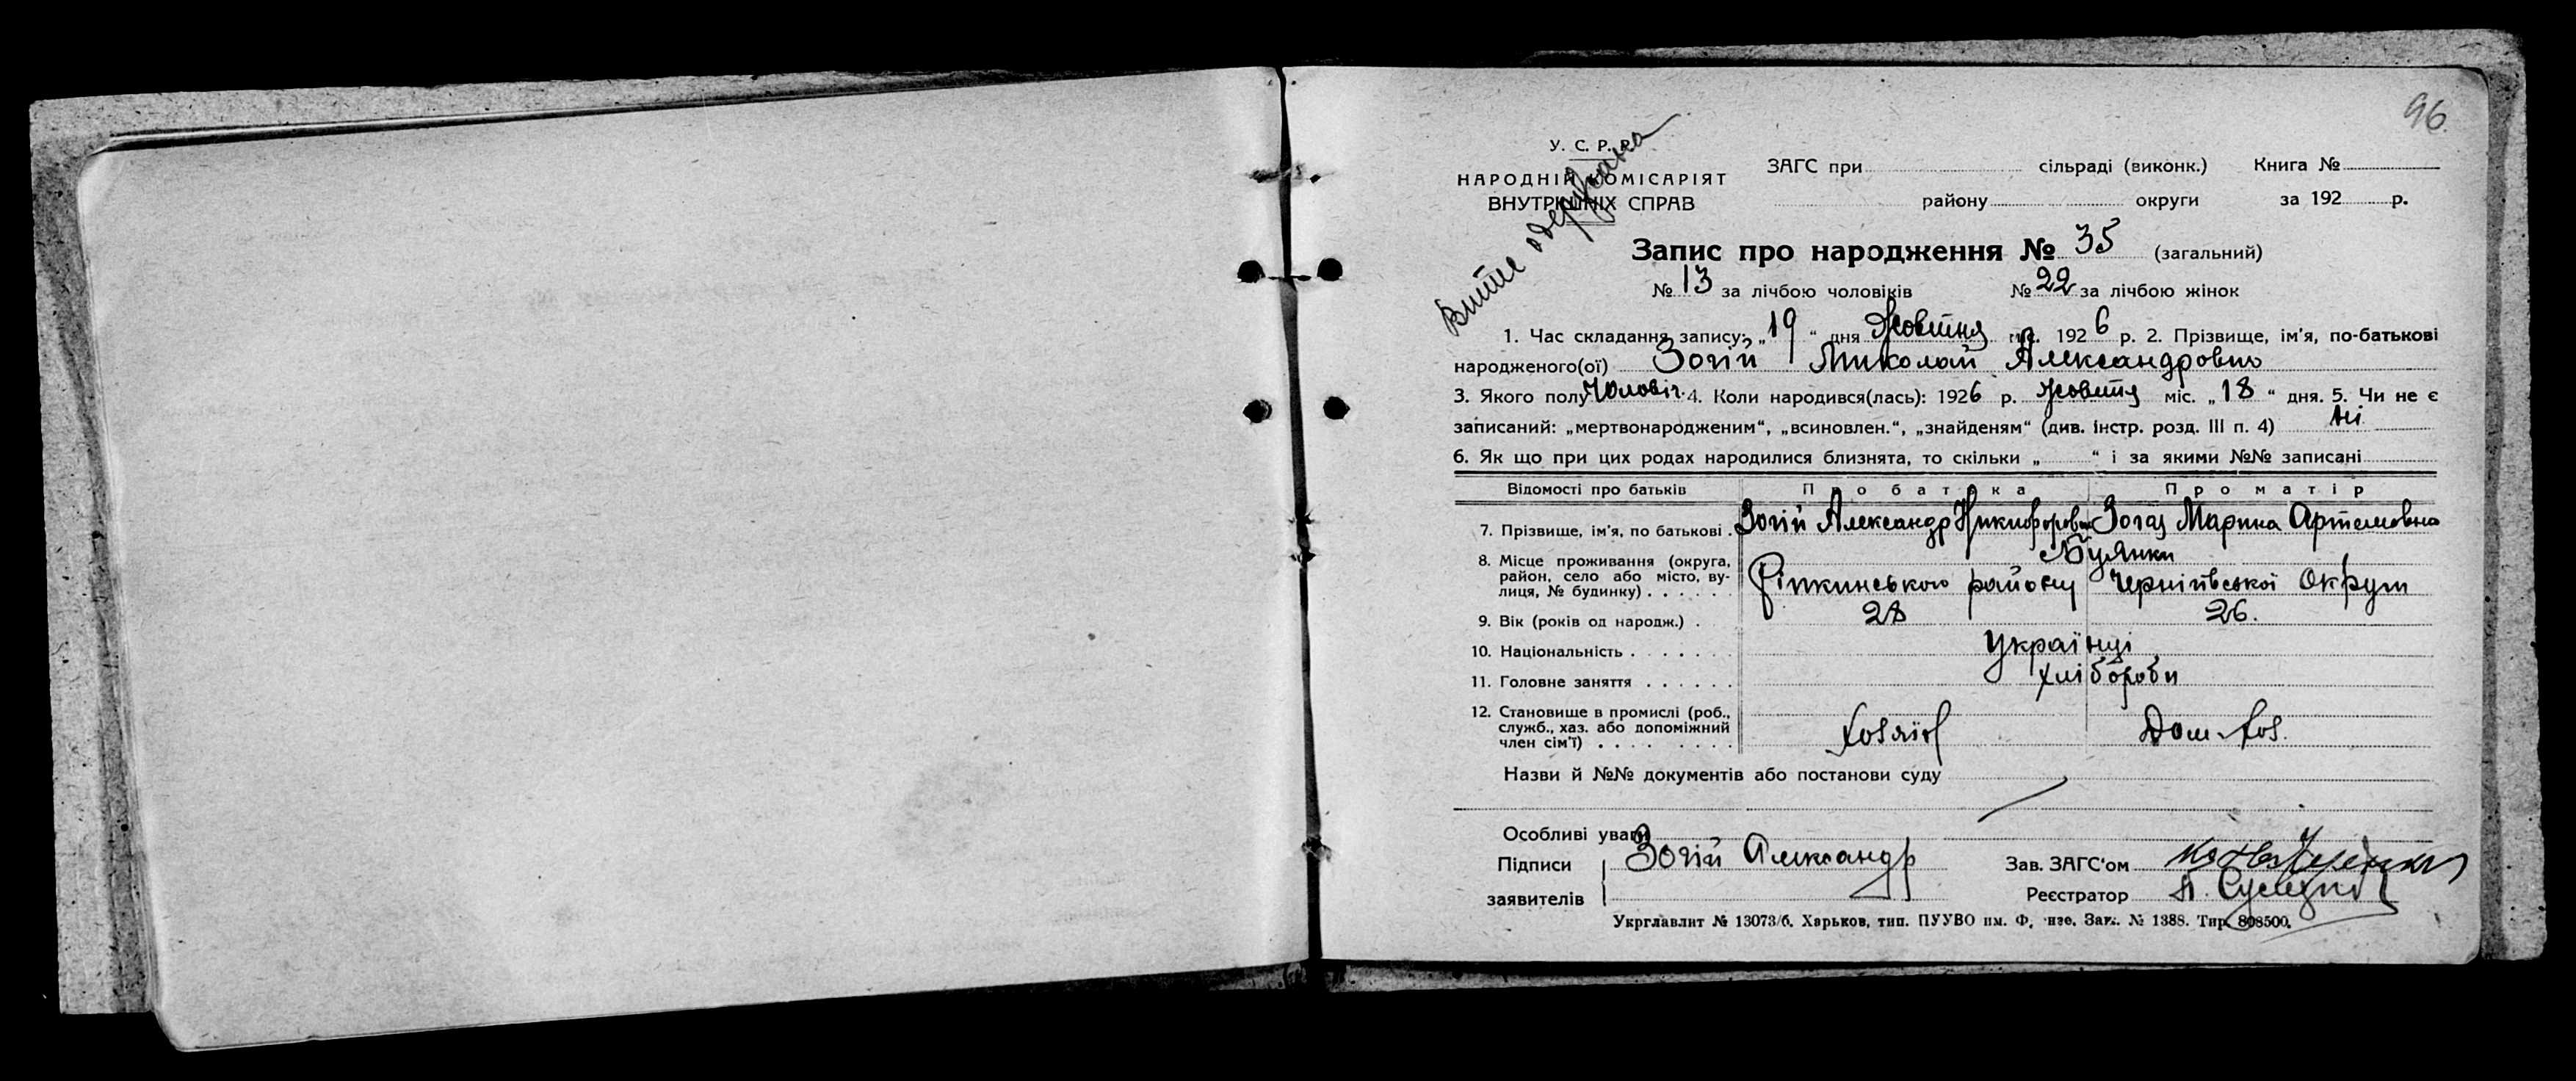 96.
У. С. Р. Р.
НАРОДНІЙ КОМІСАРІЯТ
ВНУТРІШНІХ СПРАВ
Витяг одержано
ЗАГС при сільраді (виконк.) Книга №
району округи за 192 р.
Запис про народження № 35 (загальний)
№ 13 за лічбою чоловіків № 22 за лічбою жінок
1. Час складання запису: „19“ дня Жовтня міс. 1926 р. 2. Прізвище, ім'я, по-батькові
народженого(ої) Зогій Миколай Александрович
3. Якого полу Чоловіч. 4. Коли народився(лась): 1926 р. Жовтня міс. „18“ дня. 5. Чи не є
записаний: „мертвонародженим“, „всиновлен.“, „знайденям“ (див. інстр. розд. III п. 4) Ні
6. Як що при цих родах народилися близнята, то скільки „ “ і за якими №№ записані
Відомості про батьків Про батька Про матір
7. Прізвище, ім'я, по батькові . Зогій Александр Никифорович Зогій Марина Артемовна
8. Місце проживання (округа, район, село або місто, вулиця, № будинку) . . . . . . Буянки
Ріпкинського району Чернігівської Округи
9. Вік (років од народж.) . 28 26.
10. Національність . . . . . . . Українці
11. Головне заняття . . . . . . Хлібороби
12. Становище в промислі (роб., служб., хаз. або допоміжний член сім'ї) . . . . . . . . . Хозяїн Дом. хоз.
Назви й №№ документів або постанови суду
Особливі уваги
Підписи Зогій Александр Зав. ЗАГС'ом
заявителів Реєстратор
Укрглавлит № 13073/б. Харьков, тип. ПУУВО им. Ф. Зак. № 1388. Тир. 808500.